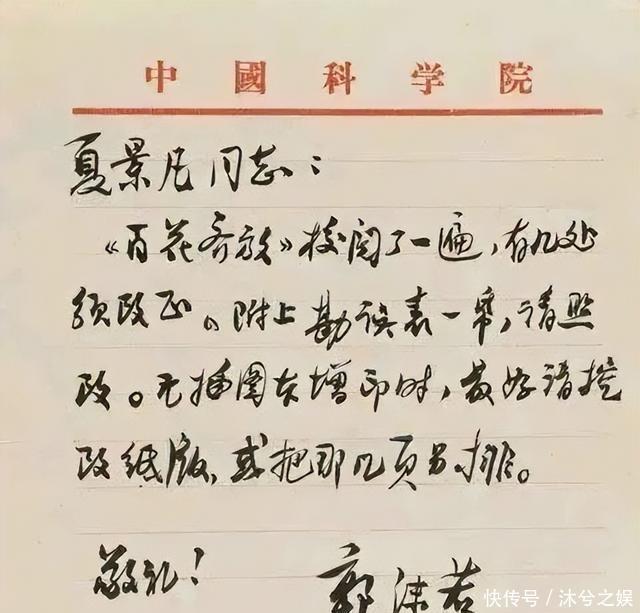 中國科学院
夏景凡同志：
《百花齐放》校阅了一遍，有几处
须改正。附上勘误表一帋，请照
改。无插图本增印时，最好请挖
改纸版，或把那几页另排。
敬礼！
郭沫若
快传号／沐兮之娱